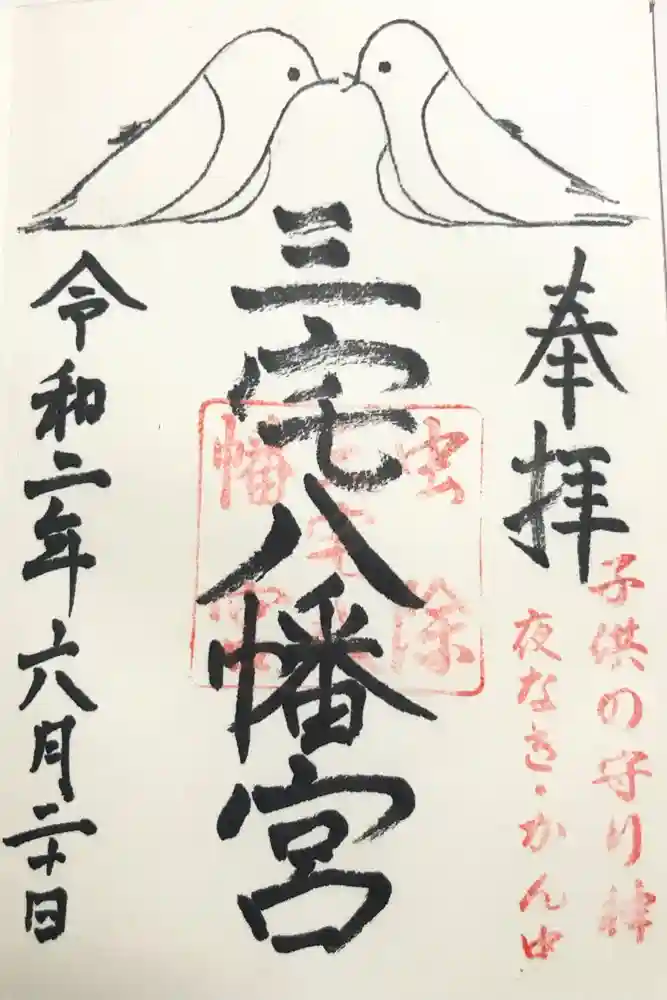 奉拝
子供の守り神
夜なき・かん虫
三宅八幡宮
虫除
三宅八
幡宮
令和二年六月二十日